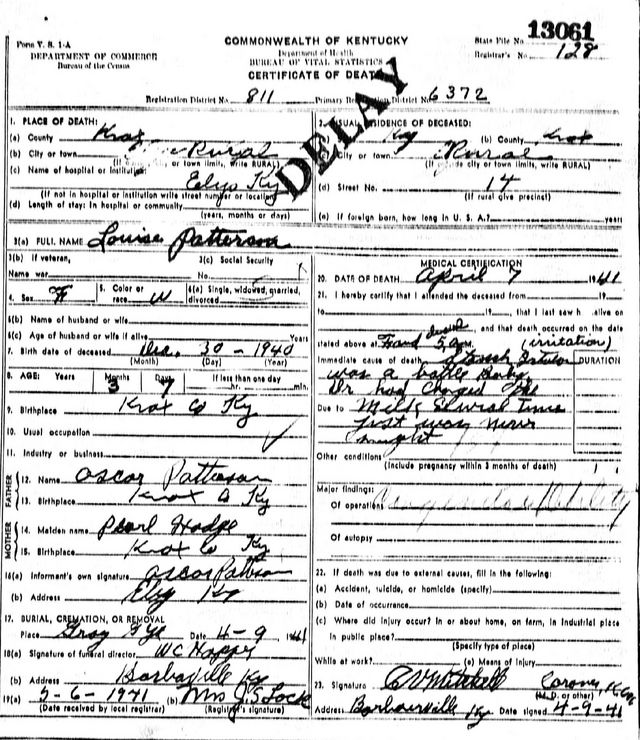 Form V. S. 1-A
DEPARTMENT OF COMMERCE
Bureau of the Census
COMMONWEALTH OF KENTUCKY
Department of Health
BUREAU OF VITAL STATISTICS
CERTIFICATE OF DEATH
State File No. 13061
Registrar's No. 128
Registration District No. 811 Primary Registration District No. 6372
DELAY
1. PLACE OF DEATH:
(a) County Knox
(b) City or town Rural
(If city or town limits, write RURAL)
(c) Name of hospital or institution:
Elys Ky
(If not in hospital or institution write street number or location)
(d) Length of stay: In hospital or community
(years, months or days)
2. USUAL RESIDENCE OF DECEASED:
Ky (b) County Knox
City or town Rural
(If outside city or town limits, write RURAL)
(d) Street No. 14
(If rural give precinct)
(e) If foreign born, how long in U. S. A.? years
3(a) FULL NAME Louise Patterson
3(b) If veteran, 3(c) Social Security
Name war No.
4. Sex F 5. Color or race W 6(a) Single, widowed, married, divorced
6(b) Name of husband or wife
6(c) Age of husband or wife if alive Years
7. Birth date of deceased Dec. 30 - 1940
(Month) (Day) (Year)
8. AGE: Years Months Days If less than one day
3 7 hr. min.
9. Birthplace Knox Co Ky
10. Usual occupation
11. Industry or business
FATHER
12. Name Oscar Patterson
13. Birthplace Knox Co Ky
MOTHER
14. Maiden name Pearl Hodge
15. Birthplace Knox Co Ky
16(a) Informant's own signature Oscar Patterson
(b) Address Ely Ky
17. BURIAL, CREMATION, OR REMOVAL
Place Date 4-9 1941
18(a) Signature of funeral director W C Hopper
(b) Address Barbourville Ky
19(a) 5-6-1941 (b) Mrs J. S. Lock
(Date received by local registrar) (Registrar's signature)
MEDICAL CERTIFICATION
20. DATE OF DEATH April 7 1941
21. I hereby certify that I attended the deceased from 19
to 19, that I last saw h alive on
19, and that death occurred on the date
stated above at Found dead 5 a.m.
(irritation)
Immediate cause of death Stomach DURATION
was a bottle Baby
Dr had changed the
Due to Milk Several Times
just was never
Other conditions
(Include pregnancy within 3 months of death)
Major findings:
Of operations
Of autopsy
22. If death was due to external causes, fill in the following:
(a) Accident, suicide, or homicide (specify)
(b) Date of occurrence
(c) Where did injury occur? In or about home, on farm, in industrial place
in public place?
(Specify type of place)
While at work? (e) Means of Injury
23. Signature C V Mitchell Coroner, K.C.
(M. D. or other)
Address Barbourville Ky Date signed 4-9-41